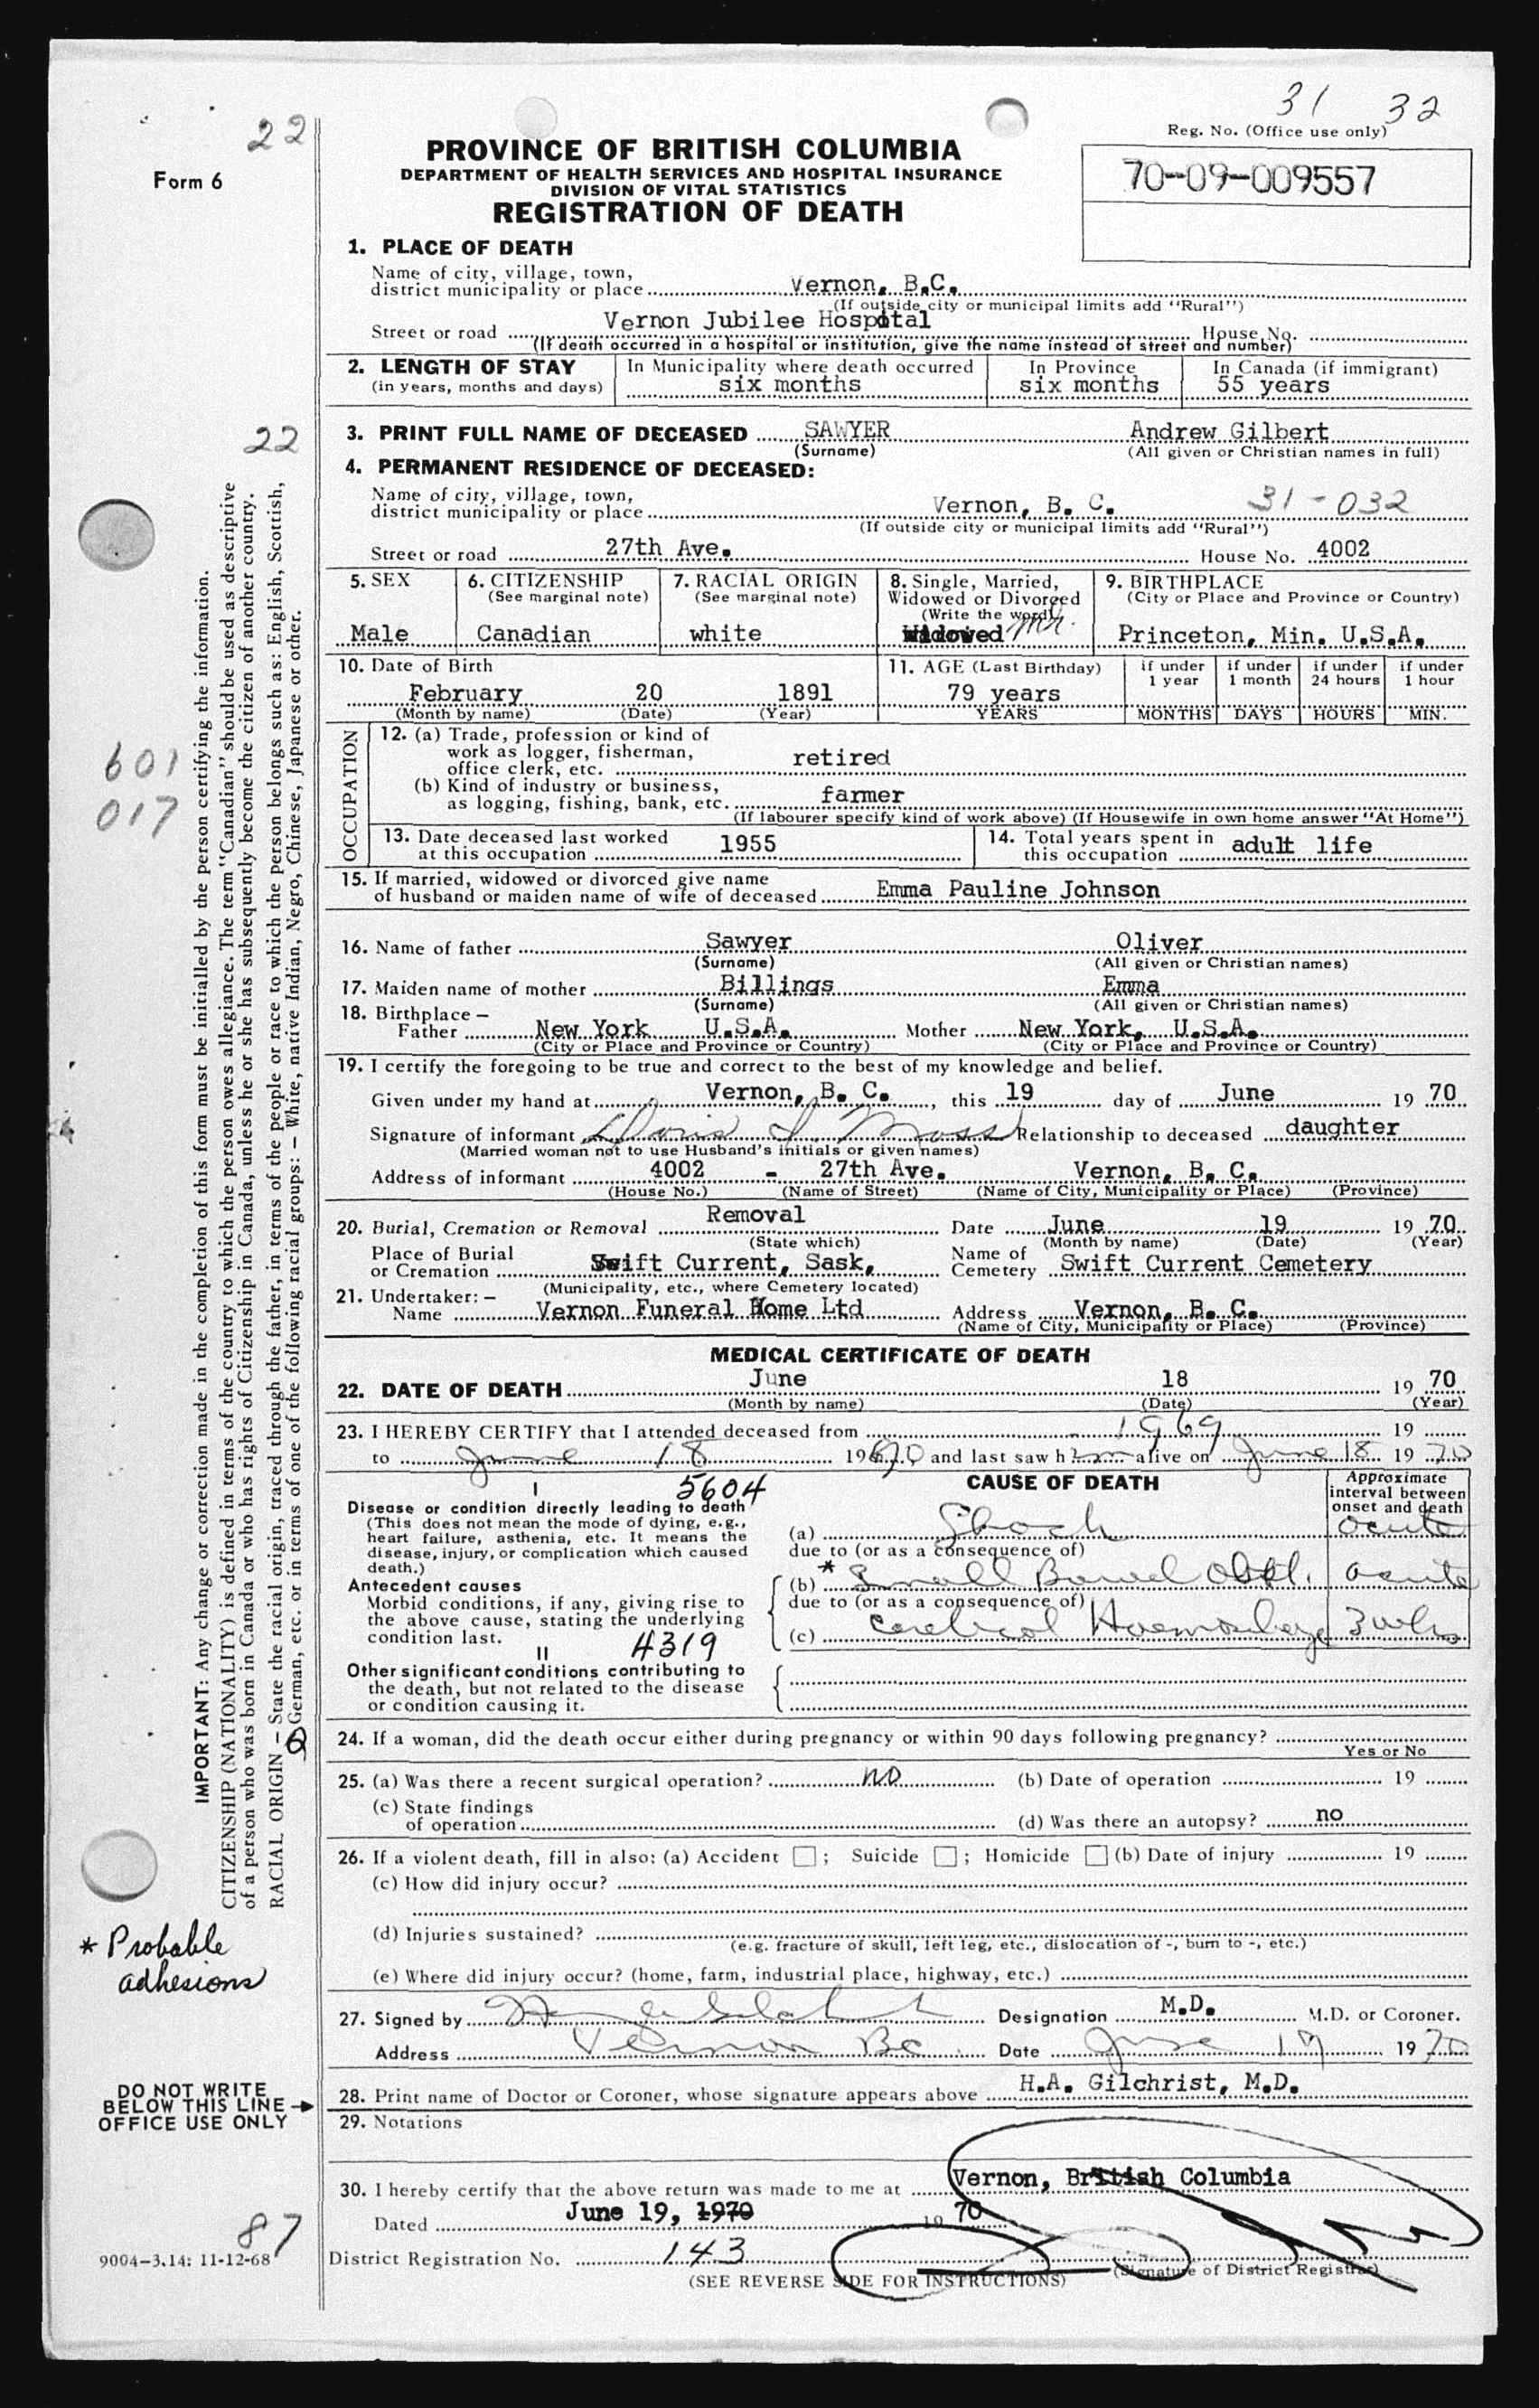 31 32
Reg. No. (Office use only)
22
Form 6
PROVINCE OF BRITISH COLUMBIA
DEPARTMENT OF HEALTH SERVICES AND HOSPITAL INSURANCE
DIVISION OF VITAL STATISTICS
REGISTRATION OF DEATH
70-09-009557
1. PLACE OF DEATH
Name of city, village, town,
district municipality or place Vernon, B.C.
(If outside city or municipal limits add "Rural")
Street or road Vernon Jubilee Hospital House No.
(If death occurred in a hospital or institution, give the name instead of street and number)
2. LENGTH OF STAY In Municipality where death occurred In Province In Canada (if immigrant)
(in years, months and days) six months six months 55 years
22
3. PRINT FULL NAME OF DECEASED SAWYER Andrew Gilbert
(Surname) (All given or Christian names in full)
4. PERMANENT RESIDENCE OF DECEASED:
Name of city, village, town,
district municipality or place Vernon, B. C. 31-032
(If outside city or municipal limits add "Rural")
Street or road 27th Ave. House No. 4002
5. SEX 6. CITIZENSHIP 7. RACIAL ORIGIN 8. Single, Married, 9. BIRTHPLACE
(See marginal note) (See marginal note) Widowed or Divorced (City or Place and Province or Country)
(Write the word)
Male Canadian white Widowed Princeton, Min. U.S.A.
10. Date of Birth 11. AGE (Last Birthday) if under 1 year if under 1 month if under 24 hours if under 1 hour
February 20 1891 79 years
(Month by name) (Date) (Year) YEARS MONTHS DAYS HOURS MIN.
OCCUPATION
12. (a) Trade, profession or kind of
work as logger, fisherman,
office clerk, etc. retired
(b) Kind of industry or business,
as logging, fishing, bank, etc. farmer
(If labourer specify kind of work above) (If Housewife in own home answer "At Home")
601
017
13. Date deceased last worked
at this occupation 1955
14. Total years spent in
this occupation adult life
15. If married, widowed or divorced give name
of husband or maiden name of wife of deceased Emma Pauline Johnson
16. Name of father Sawyer Oliver
(Surname) (All given or Christian names)
17. Maiden name of mother Billings Emma
(Surname) (All given or Christian names)
18. Birthplace —
Father New York U.S.A. Mother New York, U.S.A.
(City or Place and Province or Country) (City or Place and Province or Country)
19. I certify the foregoing to be true and correct to the best of my knowledge and belief.
Given under my hand at Vernon, B. C. , this 19 day of June 19 70
Signature of informant Doris I. Moss Relationship to deceased daughter
(Married woman not to use Husband's initials or given names)
Address of informant 4002 - 27th Ave. Vernon, B. C.
(House No.) (Name of Street) (Name of City, Municipality or Place) (Province)
20. Burial, Cremation or Removal Removal Date June 19 19 70
(State which) (Month by name) (Date) (Year)
Place of Burial
or Cremation Swift Current, Sask.
Name of
Cemetery Swift Current Cemetery
(Municipality, etc., where Cemetery located)
21. Undertaker: —
Name Vernon Funeral Home Ltd Address Vernon, B. C.
(Name of City, Municipality or Place) (Province)
MEDICAL CERTIFICATE OF DEATH
22. DATE OF DEATH June 18 19 70
(Month by name) (Date) (Year)
23. I HEREBY CERTIFY that I attended deceased from 1969 19
to June 18 1970 and last saw him alive on June 18 19 70
I 5604
CAUSE OF DEATH
Approximate interval between onset and death
Disease or condition directly leading to death
(This does not mean the mode of dying, e.g.,
heart failure, asthenia, etc. It means the
disease, injury, or complication which caused
death.)
(a) Shock acute
due to (or as a consequence of)
Antecedent causes
Morbid conditions, if any, giving rise to
the above cause, stating the underlying
condition last.
* (b) Small Bowel Obst. acute
due to (or as a consequence of)
(c) Cerebral Haemorrhage 3 wks
II 4319
Other significant conditions contributing to
the death, but not related to the disease
or condition causing it.
24. If a woman, did the death occur either during pregnancy or within 90 days following pregnancy?
Yes or No
25. (a) Was there a recent surgical operation? no (b) Date of operation 19
(c) State findings
of operation (d) Was there an autopsy? no
26. If a violent death, fill in also: (a) Accident ; Suicide ; Homicide (b) Date of injury 19
(c) How did injury occur?
(d) Injuries sustained?
(e.g. fracture of skull, left leg, etc., dislocation of -, burn to -, etc.)
(e) Where did injury occur? (home, farm, industrial place, highway, etc.)
27. Signed by Designation M.D. M.D. or Coroner.
Address Vernon BC Date June 19 19 70
28. Print name of Doctor or Coroner, whose signature appears above H.A. Gilchrist, M.D.
29. Notations
30. I hereby certify that the above return was made to me at Vernon, British Columbia
Dated June 19, 1970 19 70
District Registration No. 143
(Signature of District Registrar)
(SEE REVERSE SIDE FOR INSTRUCTIONS)
IMPORTANT: Any change or correction made in the completion of this form must be initialled by the person certifying the information.
CITIZENSHIP (NATIONALITY) is defined in terms of the country to which the person owes allegiance. The term "Canadian" should be used as descriptive
of a person who was born in Canada or who has rights of Citizenship in Canada, unless he or she has subsequently become the citizen of another country.
RACIAL ORIGIN – State the racial origin, traced through the father, in terms of the people or race to which the person belongs such as: English, Scottish,
German, etc. or in terms of one of the following racial groups: – White, native Indian, Negro, Chinese, Japanese or other.
* Probable
adhesions
DO NOT WRITE
BELOW THIS LINE
OFFICE USE ONLY
87
9004-3.14: 11-12-68